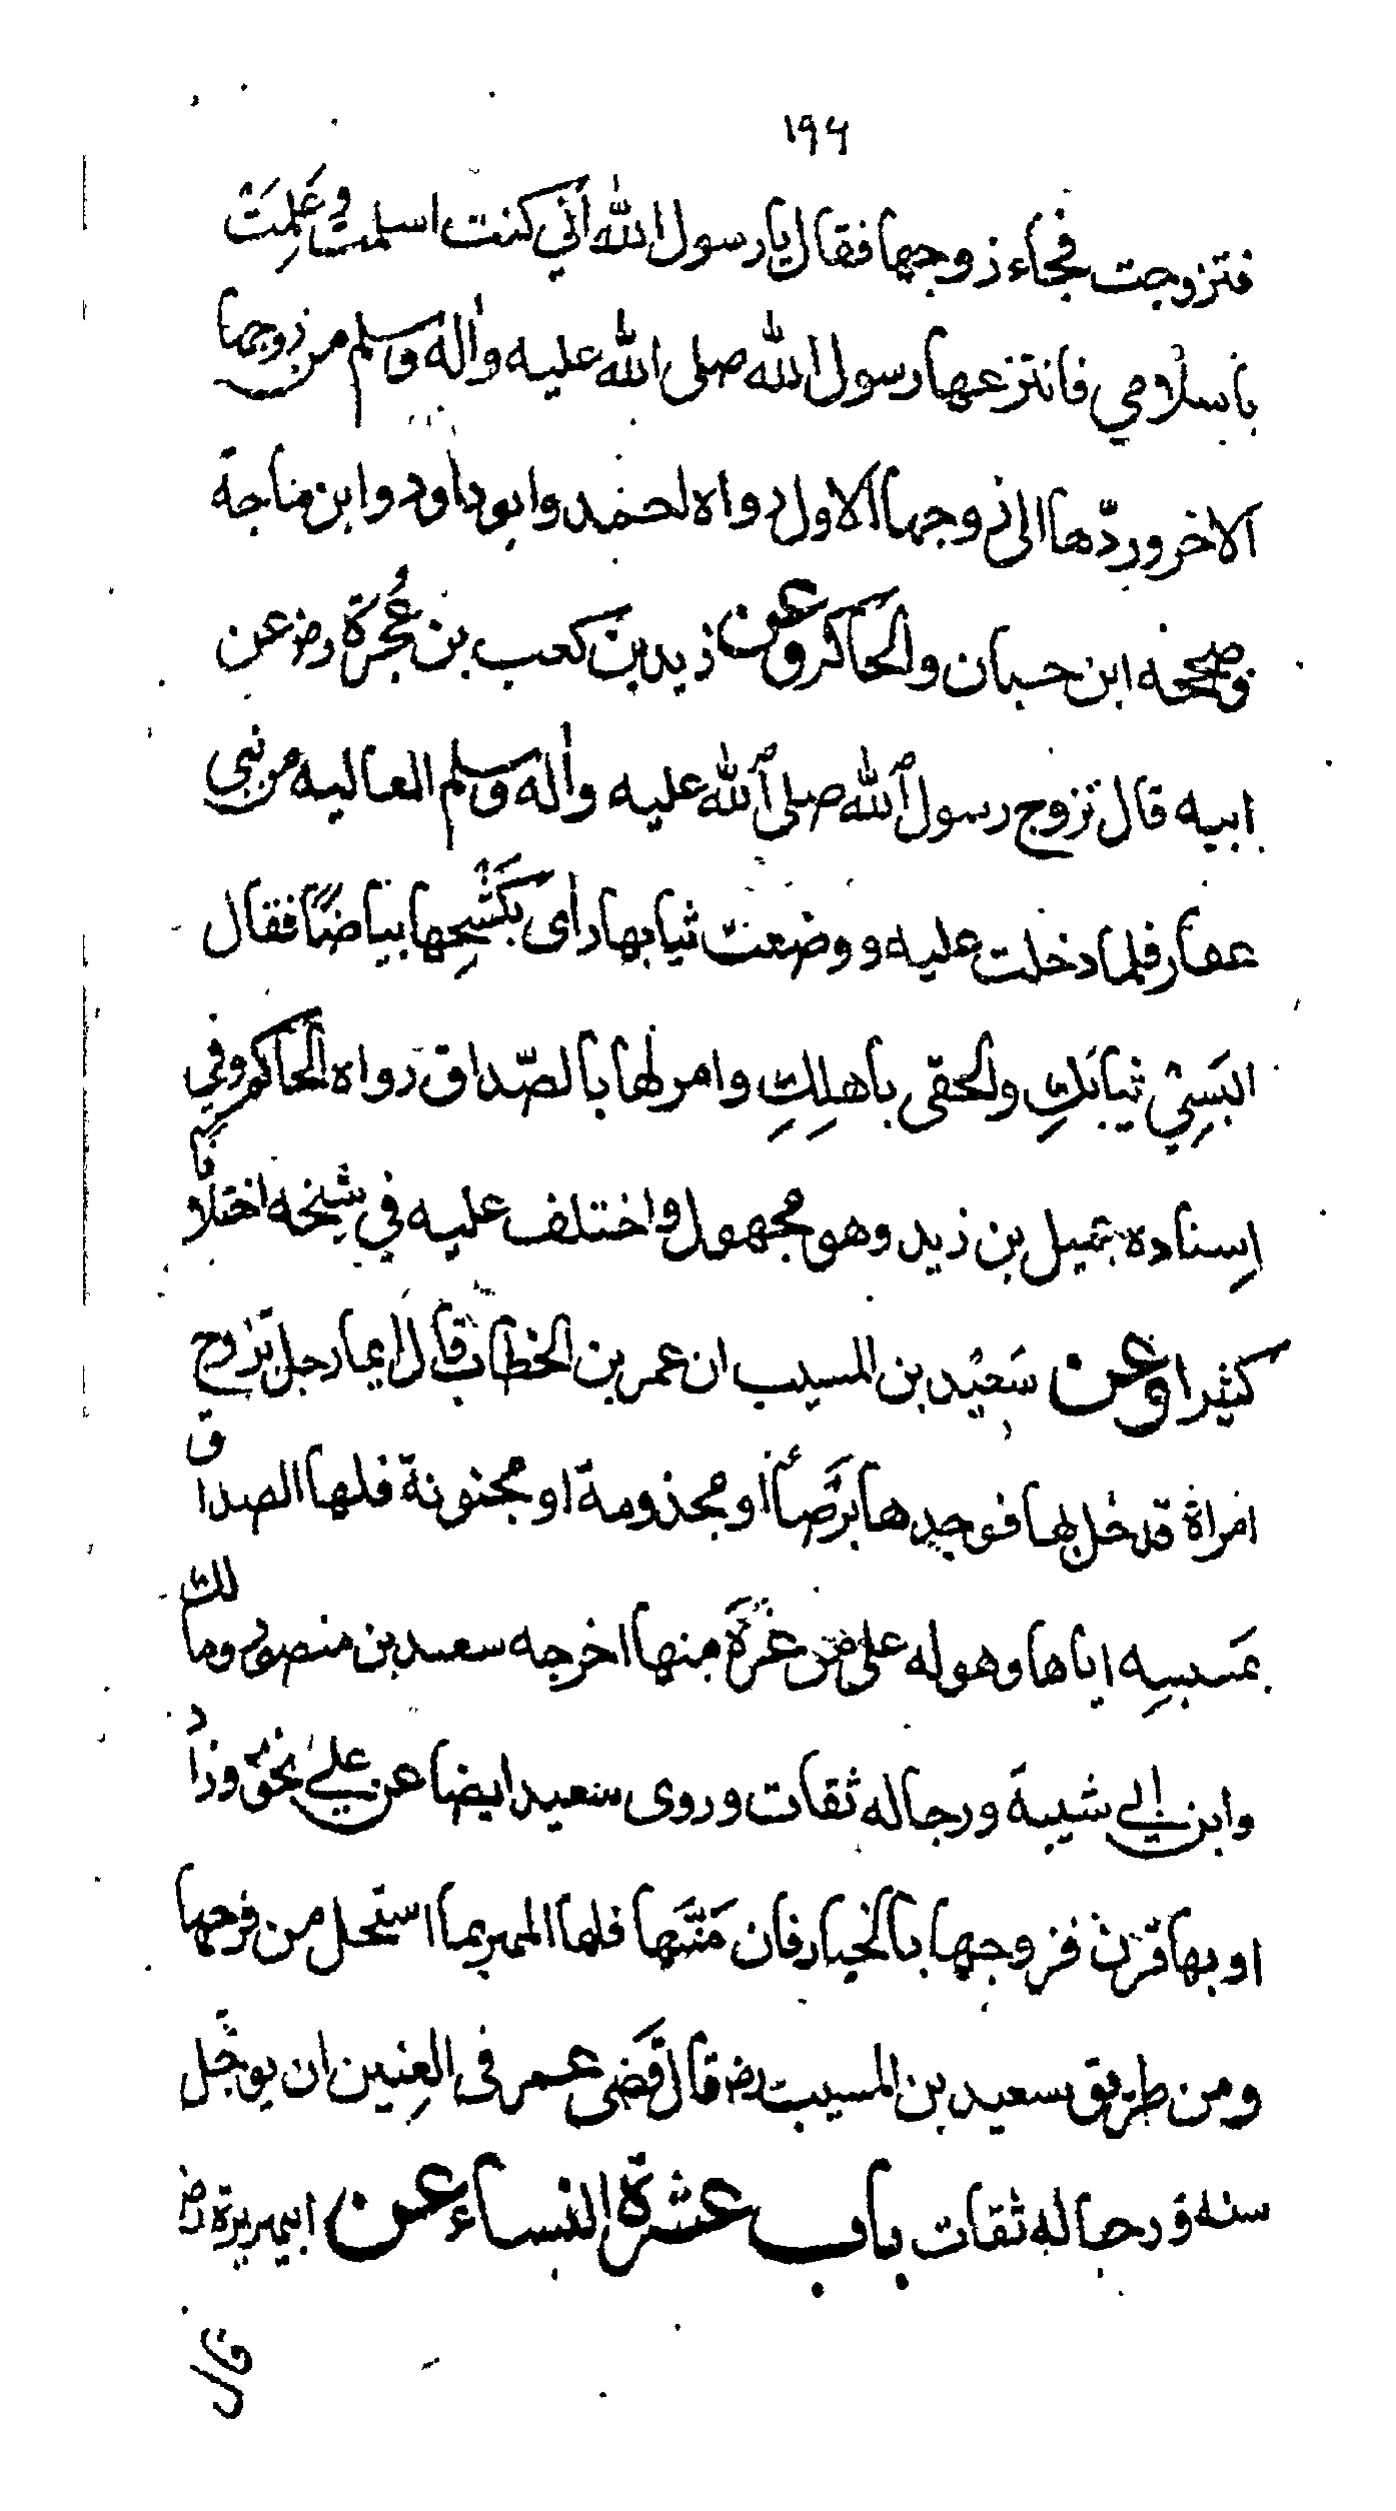 ١٩٤
فتزوجت فجاء زوجها فقال يا رسول الله اني كنت اسلمت وعَلِمَتْ
باسلامي فانتزعها رسول الله صلى الله عليه واله وسلم من زوجها
الاخر وردّها الى زوجها الاول رواه احمد وابو داود وابن ماجة
وصححه ابن حبان والحاكم وعن زيد بن كعب بن عُجْرَة رض عن
ابيه قال تزوج رسول الله صلى الله عليه واله وسلم العاليه من بني
عفار فلما دخلت عليه ووضعت ثيابها راى بكَشْحِها بياضًا فقال
البَسِيْ ثيابَكِ والحقى باهلِكِ وامر لها بالصّداق رواه الحاكم وفي
اِسناده جميل بن زيد وهو مجهول واختلف عليه في شيخه اختلافًا
كثيرا وعن سَعيْد بن المسيب ان عمر بن الخطاب قال ايما رجل تزوج
امراة فدخل بها فوجدها بَرْصَاْ او مجذومة او مجنونة فلها الصداق
بمَسيسِه اياها وهو له على من غرَّه منها اخرجه سعيد بن منصور ومالك
وابن ابي شيبة ورجاله ثقات وروى سعيد ايضا عن علي نحوه وزادَ
او بها قرن فزوجها بالخيار فان مَسَّهَا فلها المهر بما استحل من فرجها
ومن طريق سعيد بن المسيب رض قال قَضى عمر فى العِنِين ان يوجَّل
سنه ورجاله ثقات باب عشرة النساء عن ابيهريرة رض
قال